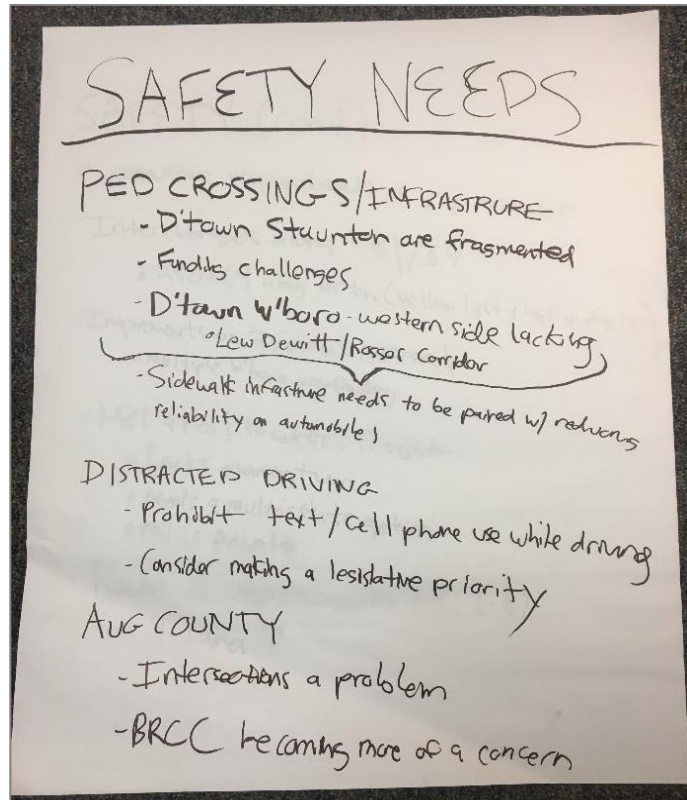 SAFETY NEEDS
PED CROSSINGS/INFRASTRURE
- D'town Staunton are fragmented
- Funding challenges
- D'town W'boro - western side lacking
• Lew Dewitt/Rosser Corridor
- Sidewalk infrastrure needs to be paired w/ reducing
reliability on automobiles
DISTRACTED DRIVING
- Prohibit text/cell phone use while driving
- Consider making a legislative priority
AUG COUNTY
- Intersections a problem
- BRCC becoming more of a concern